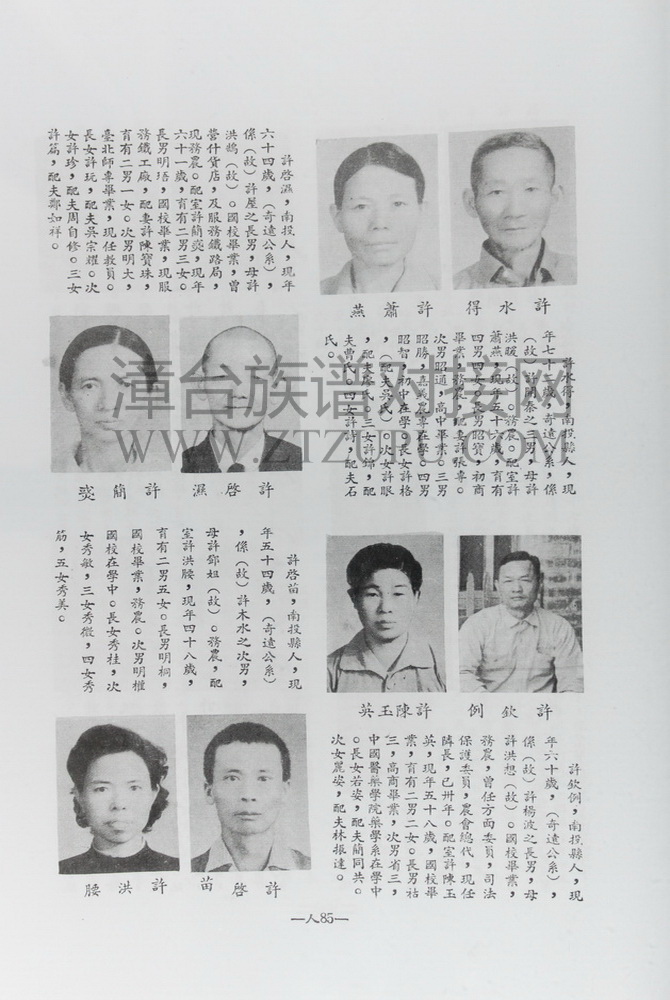 許水得
許蕭燕
許水得,南投縣人,現
年七十 歲,奇遠公系,係
(故)許開泰之三男,母許
洪暖(故)。務農。配室許
蕭燕,現年五十六歲,育有
四男四女。長男昭寶,初商
畢業,務農,配妻許張專。
次男昭通,高中畢業。三男
昭勝,嘉義農專在學。四男
昭智,初中在學。長女許格
,(配夫吳氏)。次女許眼
,配夫 氏。三女許錦,配
夫曹氏。四女許 ,配夫石
氏。
許欽例
許陳玉英
許欽例,南投縣人,現
年六十歲,(奇遠公系),
係(故)許楊波之長男,母
許洪想(故)。國校畢業,
務農,曾任方面委員,司法
保護委員,農會總代,現任
隣長,已卅年。配室許陳玉
英,現年五十八歲,國校畢
業,育有二男二女。長男祜
三,高商畢業,次男省三,
中國醫藥學院藥學系在學中
。長女若姿,配夫簡同共。
次女麗姿,配夫林振達。
許啓濕,南投人,現年
六十四歲,(奇遠公系),
係(故)許屋之長男,母許
洪鵠(故)。國校畢業,曾
營什貨店,及服務鐵路局,
現務農。配室許簡 ,現年
六十一歲,育有二男三女。
長男明珸,國校畢業,現服
務鐵工廠,配妻許陳寶珠,
育有二男一女。次男明大,
臺北師專畢業,現任教員。
長女許玩,配夫吳宗耀。次
女許珍,配夫周自修。三女
許篇,配夫鄭如祥。
許啓濕
許簡
許啓苗,南投縣人,現
年五十四歲,(奇遠公系)
,係(故)許木水之次男,
母許鄧妲(故)。務農,配
室許洪腰,現年四十八歲,
育有二男五女。長男明桐,
國校畢業,務農。次男明權
國校在學中。長女秀桂,次
女秀敏,三女秀微,四女秀
筋,五女秀美。
許啓苗
許洪腰
—人85—
漳台族谱对接网
WWW.ZTZUPU.COM